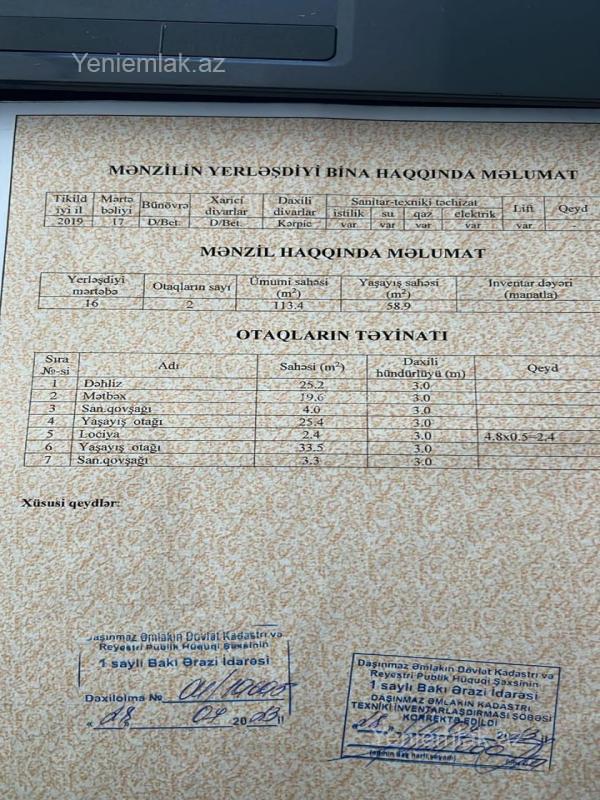 Yeniemlak.az
MƏNZİLİN YERLƏŞDİYİ BİNA HAQQINDA MƏLUMAT
Tikildiyi il Mərtəbəliyi Bünövrə Xarici divarlar Daxili divarlar Sanitar-texniki təchizat Lift Qeyd
istilik su qaz elektrik
2019 17 D/Bet. D/Bet. Kərpic var var var var var -
MƏNZİL HAQQINDA MƏLUMAT
Yerləşdiyi mərtəbə Otaqların sayı Ümumi sahəsi (m²) Yaşayış sahəsi (m²) İnventar dəyəri (manatla)
16 2 113.4 58.9
OTAQLARIN TƏYİNATI
Sıra №-si Adı Sahəsi (m²) Daxili hündürlüyü (m) Qeyd
1 Dəhliz 25.2 3.0
2 Mətbəx 19.6 3.0
3 San.qovşağı 4.0 3.0
4 Yaşayış otağı 25.4 3.0
5 Lociya 2.4 3.0 4.8x0.5=2.4
6 Yaşayış otağı 33.5 3.0
7 San.qovşağı 3.3 3.0
Xüsusi qeydlər:
Daşınmaz Əmlakın Dövlət Kadastrı və
Reyestri Publik Hüquqi Şəxsinin
1 saylı Bakı Ərazi İdarəsi
Daxilolma №
« 28 » 2023 il
Daşınmaz Əmlakın Dövlət Kadastrı və
Reyestri Publik Hüquqi Şəxsinin
1 saylı Bakı Ərazi İdarəsi
DAŞINMAZ ƏMLAKIN KADASTRI,
TEXNİKİ İNVENTARLAŞDIRMASI ŞÖBƏSİ
KORREKTƏ EDİLDİ
Yeniemlak.az